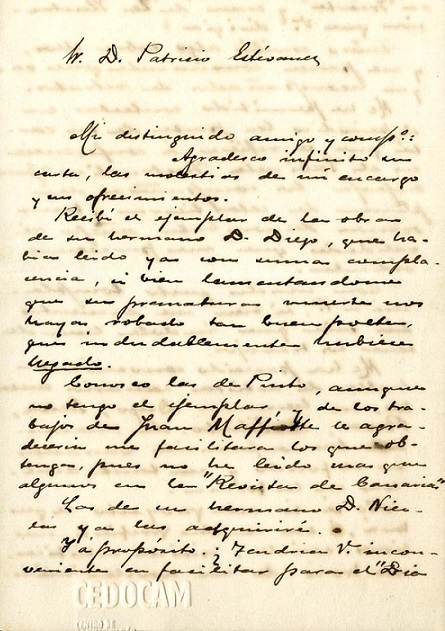 Sr. D. Patricio Estévanez
Mi distinguido amigo y compº:
Agradesco infinito su
carta, las molestias de mi encargo
y sus ofrecimientos.
Recibí el ejemplar de las obras
de su hermano D. Diego, que ha-
bía leido ya con suma compla-
cencia, si bien lamentandome
que su prematura muerte nos
haya robado tan buen poeta,
que indudablemente hubiese
llegado.
Conosco las de Pinto, aunque
no tengo el ejemplar, y de los tra-
bajos de Juan Maffiotte le agra-
deceria me facilitara los que ob-
tenga, pues no he leido mas que
algunos en la "Revista de Canarias"
Las de su hermano D. Nico-
las ya las adquiriré.
Y á propósito. ¿Tendria V. incon-
veniente en facilitar para el "Dia
CEDOCAM